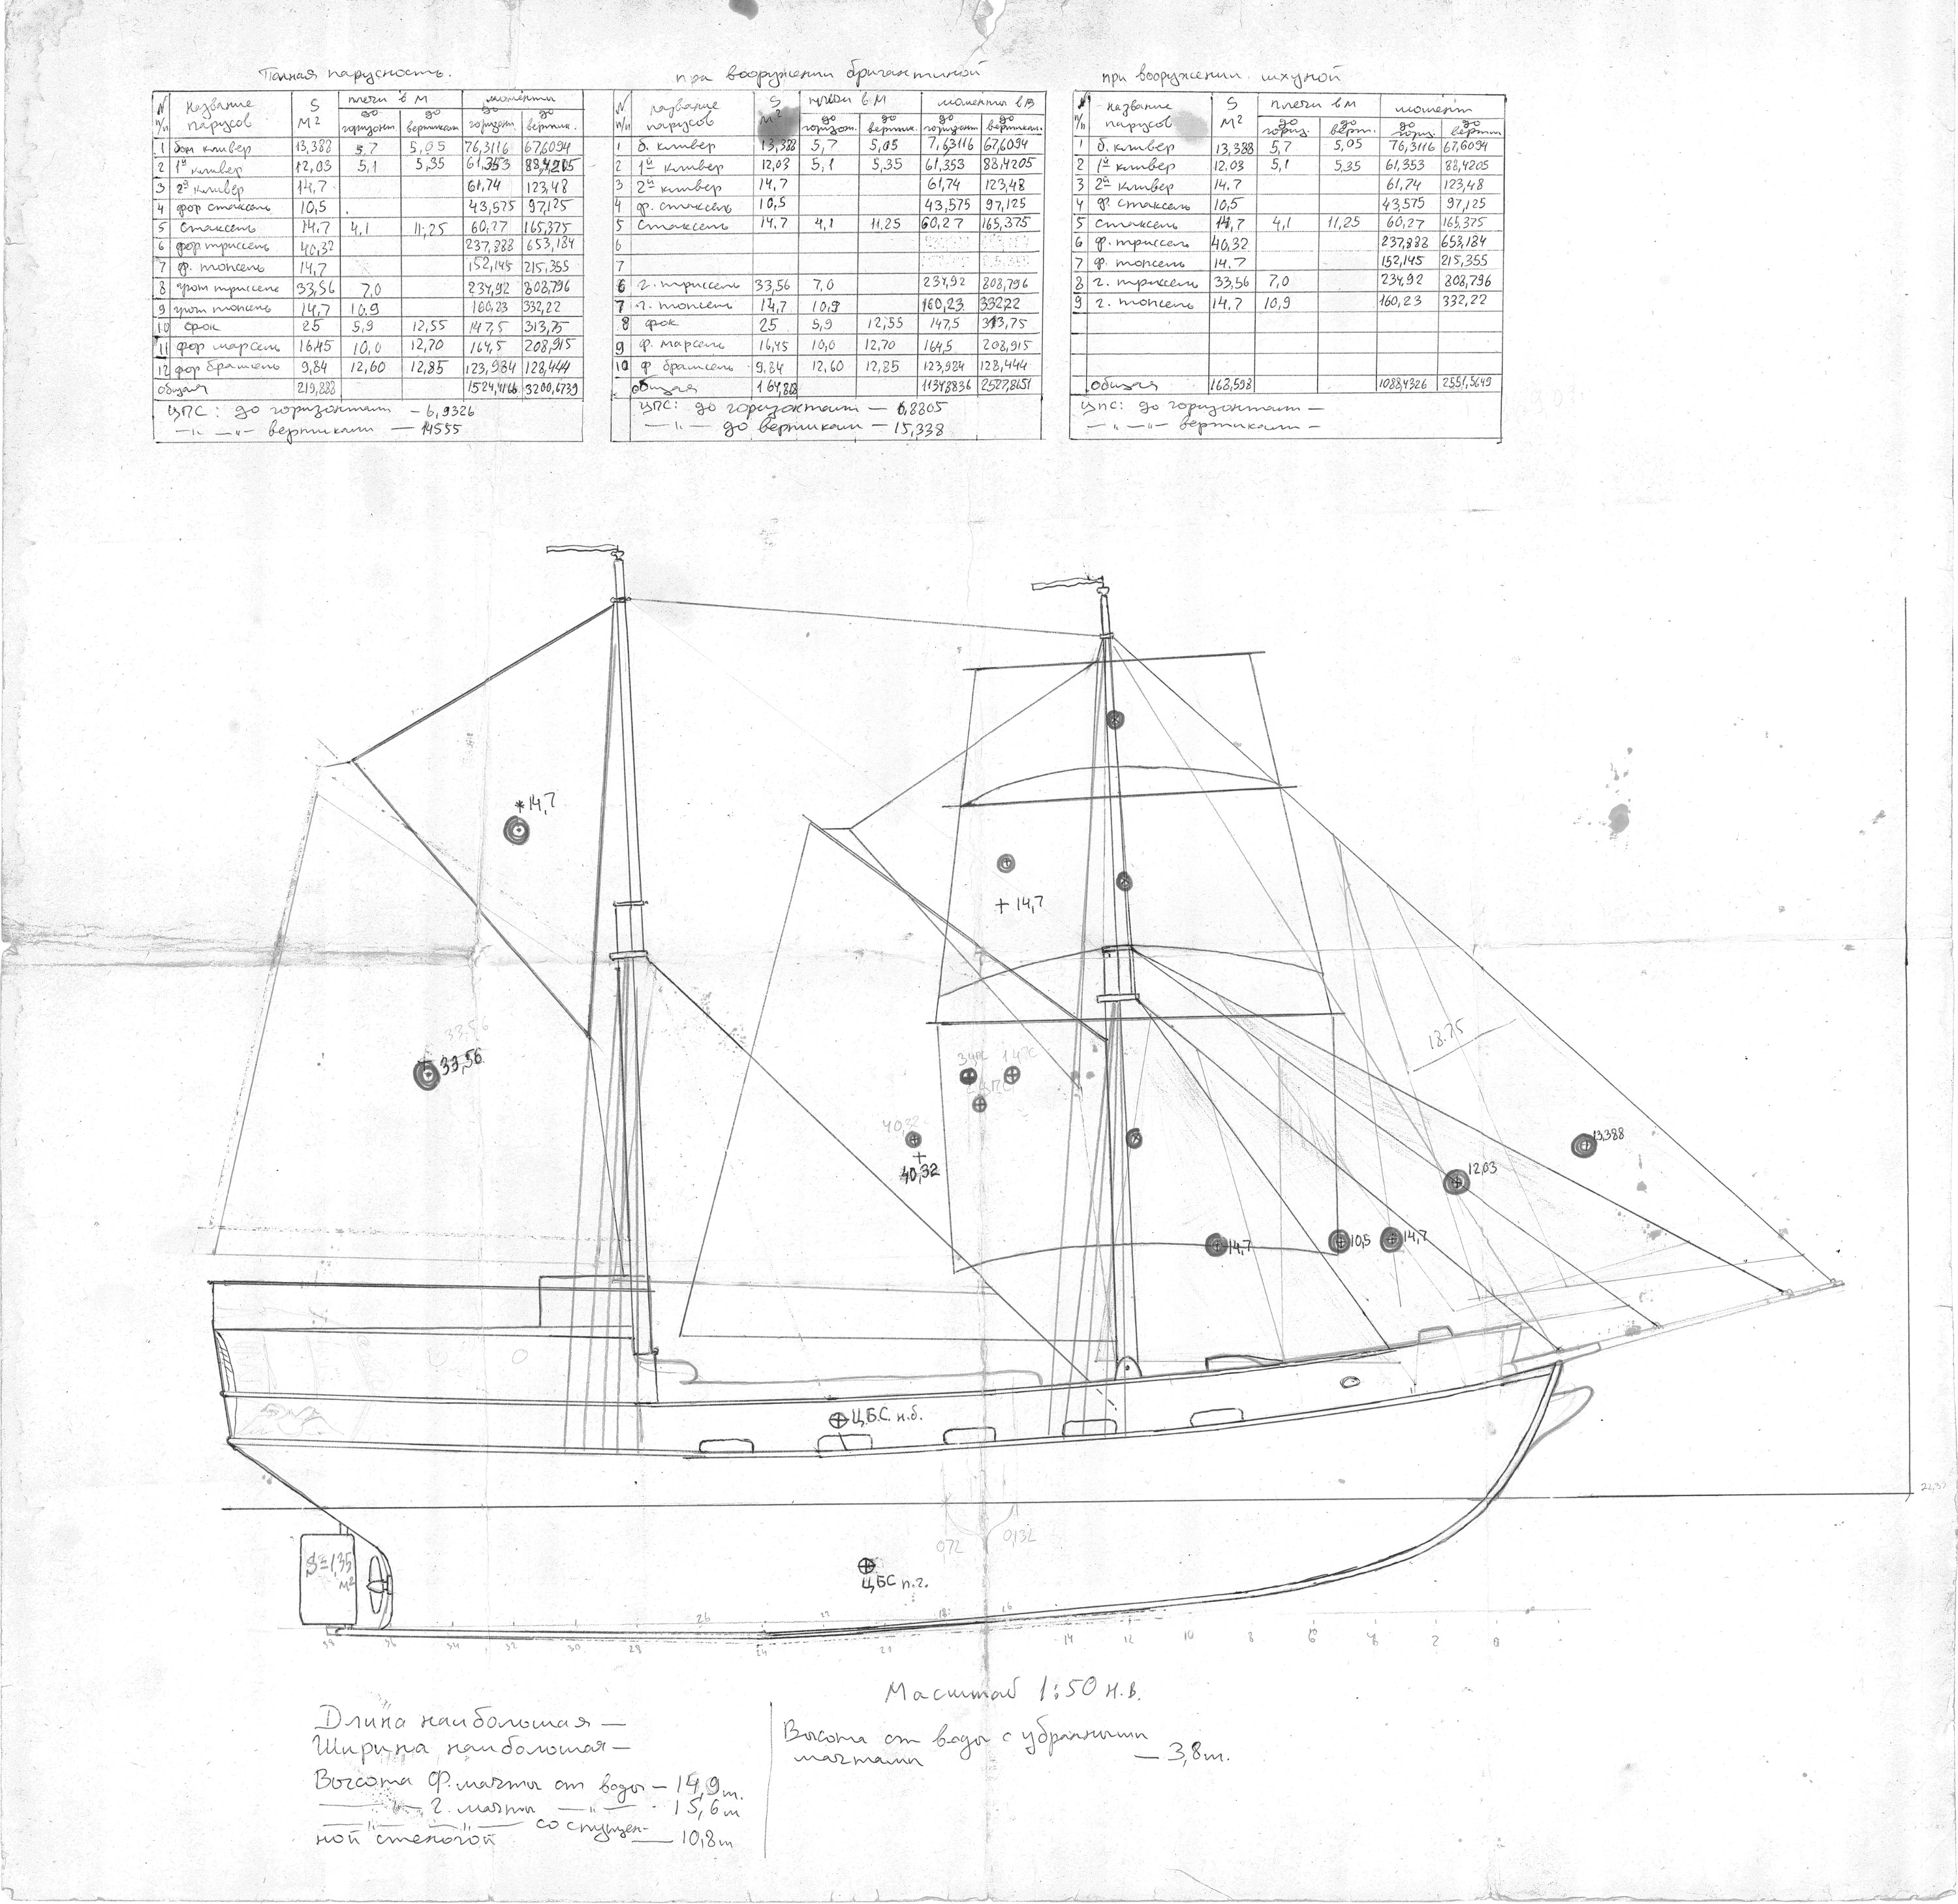 Полная парусность.
N п/п название парусов S М² плечи в М моменты
до горизонт. до вертикали до горизонт. до вертик.
1 бом кливер 13,388 5,7 5,05 76,3116 67,6094
2 1й кливер 12,03 5,1 5,35 61,353 88,4205
3 2й кливер 14,7 61,74 123,48
4 фор стаксель 10,5 43,575 97,125
5 Стаксель 14,7 4,1 11,25 60,27 165,375
6 фор триссель 40,32 237,888 653,184
7 ф. топсель 14,7 152,145 215,355
8 грот триссель 33,56 7,0 234,92 808,796
9 грот топсель 14,7 10,9 160,23 332,22
10 фок 25 5,9 12,55 147,5 313,75
11 фор марсель 16,45 10,0 12,70 164,5 208,915
12 фор брамсель 9,84 12,60 12,85 123,984 128,444
общая 219,888 1524,4166 3200,6739
ЦПС: до горизонтали – 6,9326
—"— —"— вертикали — 14555
при вооружении бригантиной
N п/п название парусов S М² плечи в М моменты в М
до горизонт. до вертик. до горизонт. до вертикали
1 б. кливер 13,388 5,7 5,05 7,63116 67,6094
2 1й кливер 12,03 5,1 5,35 61,353 88,4205
3 2й кливер 14,7 61,74 123,48
4 ф. стаксель 10,5 43,575 97,125
5 Стаксель 14,7 4,1 11.25 60,27 165,375
6
7
6 г. триссель 33,56 7,0 234,92 808,796
7 г. топсель 14,7 10,9 160,23 33222
8 фок 25 5,9 12,55 147,5 313,75
9 ф. марсель 16,45 10,0 12.70 164,5 208,915
10 ф брамсель 9,84 12,60 12,85 123,984 128,444
общая 164,868 1134,8836 2527,8651
ЦПС: до горизонтали — 6,8805
—"— до вертикали — 15,338
при вооружении шхуной
N п/п название парусов S М² плечи в М момент
до гориз. до верт. до гориз. до вертик
1 б. кливер 13,388 5,7 5,05 76,3116 67,6094
2 1й кливер 12.03 5,1 5,35 61,353 88,4205
3 2й кливер 14.7 61,74 123,48
4 ф. стаксель 10,5 43,575 97,125
5 стаксель 14,7 4,1 11,25 60,27 165,375
6 ф. триссель 40,32 237,888 653,184
7 ф. топсель 14.7 152,145 215,355
8 г. триссель 33,56 7,0 234,92 808,796
9 г. топсель 14.7 10,9 160,23 332,22
общая 168,598 1088,4326 2551,5649
ЦПС: до горизонтали —
—"— —"— вертикали —
14,7
14,7
33,56
33,56
18.75
40,32
40,32
13,388
12,03
14,7
10,5
14,7
Ц.Б.С. н.б.
22,35
072
0,132
S=1,35 м²
ЦБС п.г.
26 22 18 16
38 36 34 32 30 28 24 21 14 12 10 8 6 4 2 0
Масштаб 1:50 н.в.
Длина наибольшая —
Ширина наибольшая —
Высота Ф.мачты от воды — 14,9 м.
—"— г. мачты —"— 15,6 м
—"— —"— со спущен-
ной стеньгой — 10,8 м
Высота от воды с убранными
мачтами — 3,8 м.